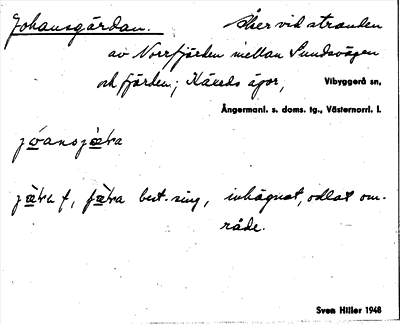 Johansgården. Åker vid stranden
av Norrfjärden mellan Sundsvägen
och fjärden; Käxeds ägor, Vibyggerå sn,
Ångermanl. s. doms. tg., Västernorrl. l.
best. sing, inhägnat, odlat om-
råde.
Sven Hiller 1948